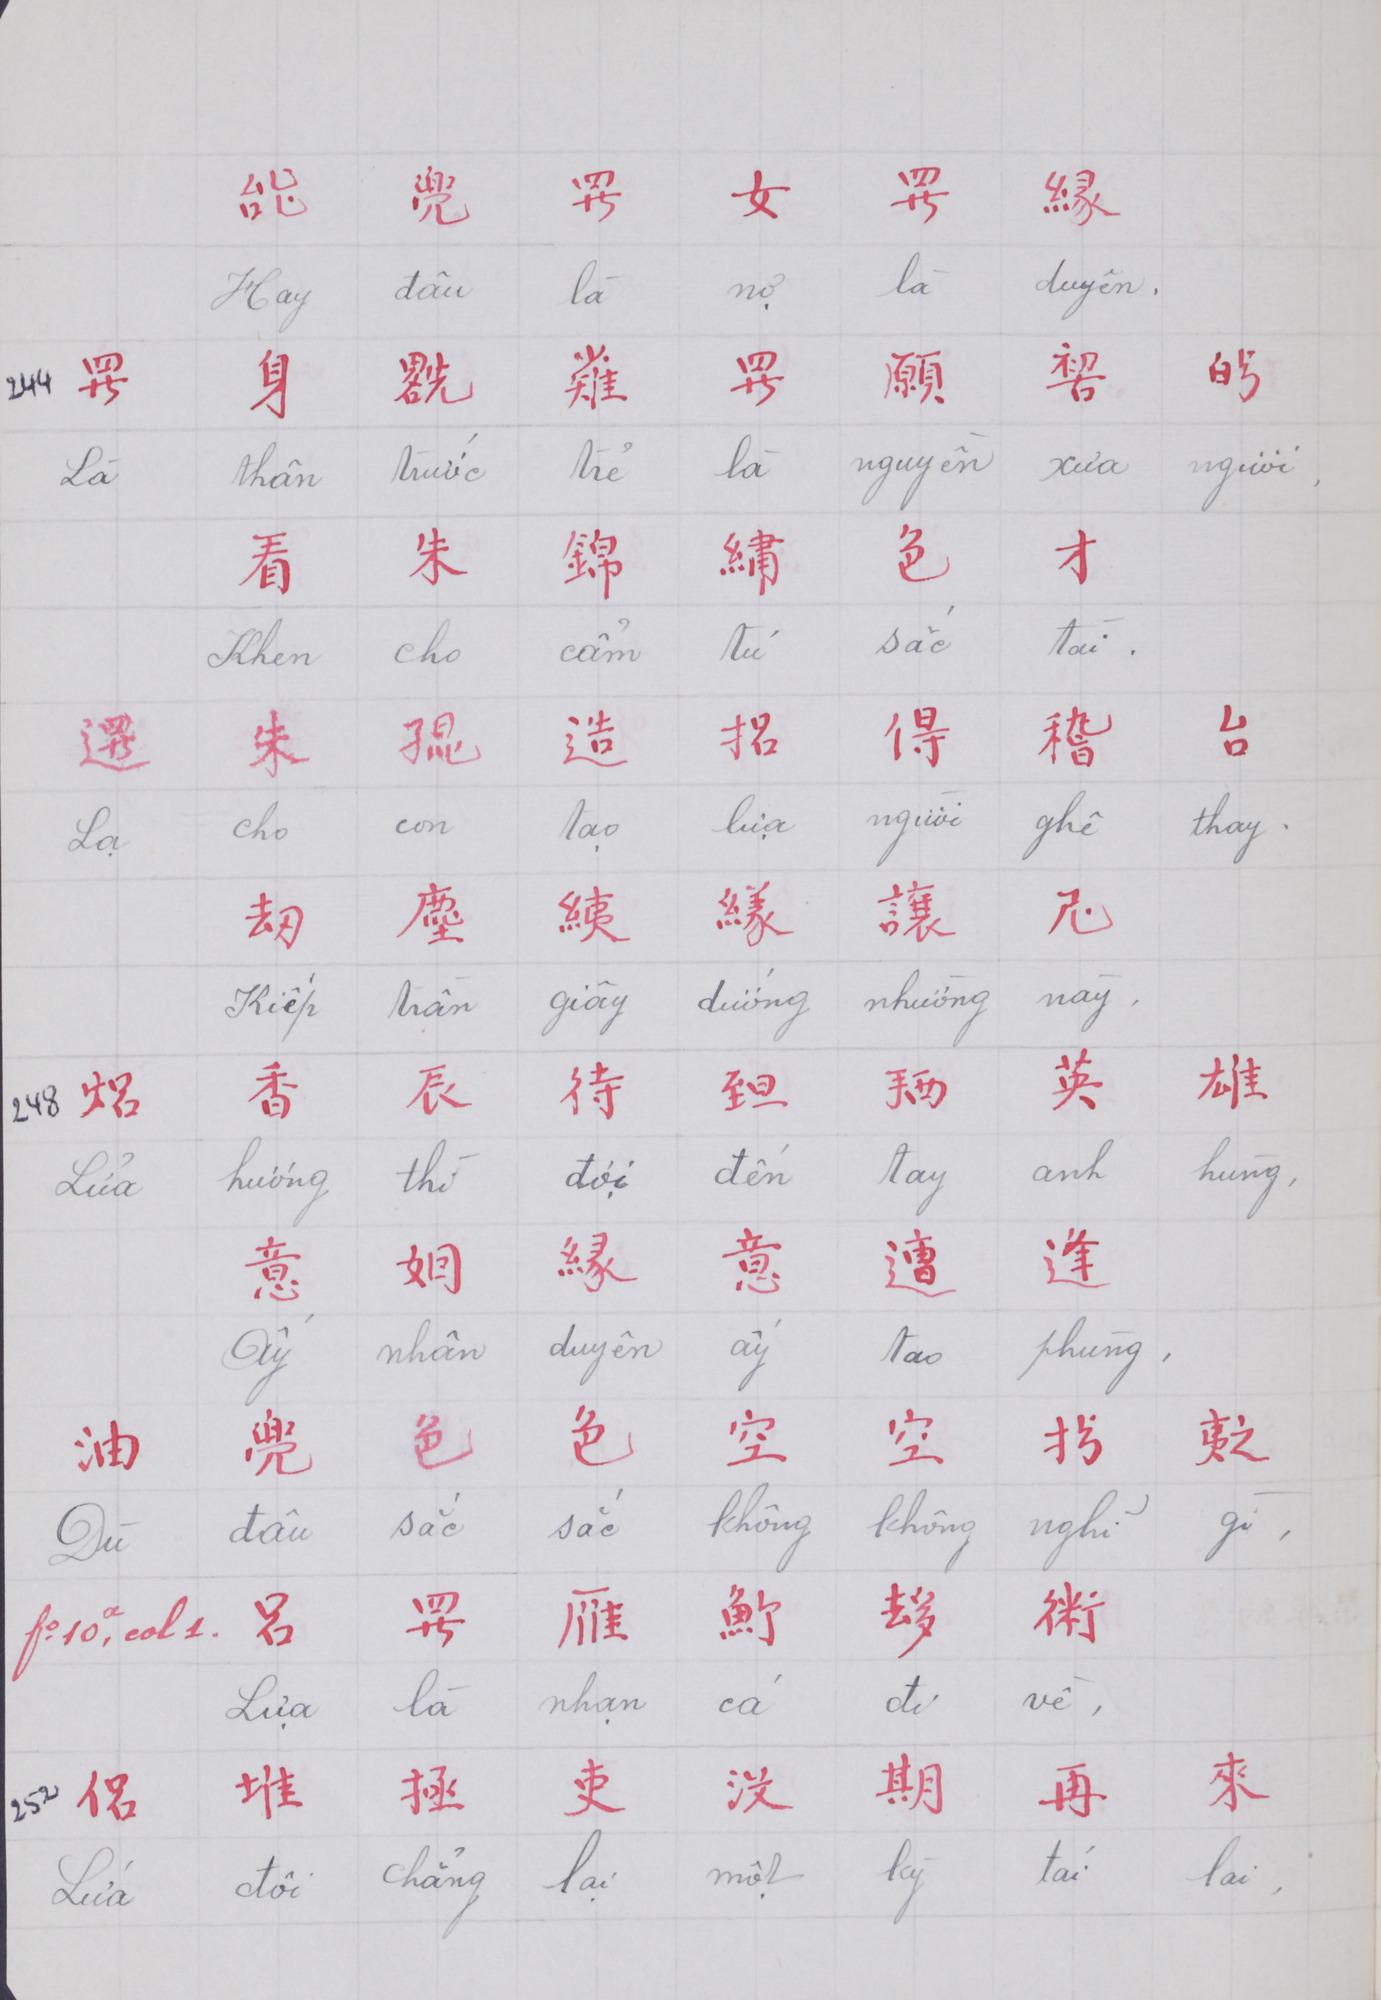 𫨩 兠 𪜀 女 𪜀 緣
Hay đâu là nợ là duyên.
244 𪜀 身 𠓀 𥘷 𪜀 願 𠸗 𠊛
Là thân trước trẻ là nguyền xưa người,
看 朱 錦 繡 色 才
Khen cho cẩm tú sắc tài.
邏 朱 𡥵 造 招 得 稽 台
Lạ cho con tạo lựa người ghê thay.
劫 塵 羕 讓 尼
Kiếp trần giây dướng nhường này,
248 焒 香 辰 待 𦤾 𢬣 英 雄
Lửa hương thì đợi đến tay anh hùng,
意 姻 緣 意 遭 逢
Ấy nhân duyên ấy tao phùng,
油 兠 色 色 空 空 𢪀 夷
Dù đâu sắc sắc không không nghỉ gì,
fº 10ᵃ, col 1. 呂 𪜀 雁 𩵜 𠫾 術
Lựa là nhạn cá đi về,
252 侶 堆 拯 吏 没 期 再 來
Lứa đôi chẳng lại một kỳ tái lai,